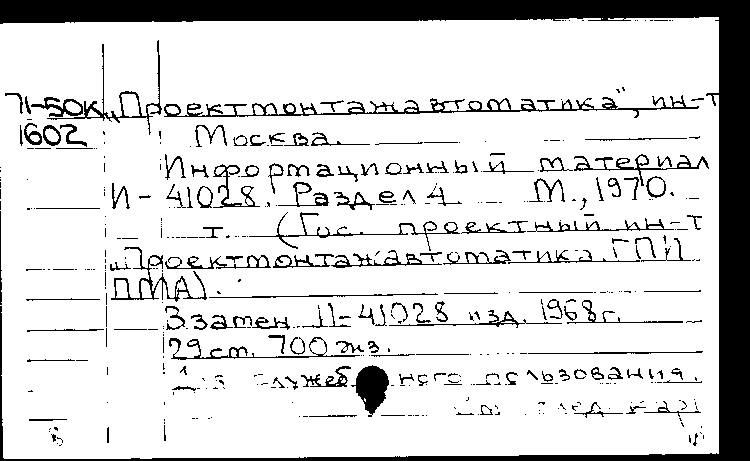 71-50К „Проектмонтажавтоматика", ин-т
1602 Москва.
Информационный материал
И-41028. Раздел 4 М., 1970.
т. (Гос. проектный ин-т
„Проектмонтажавтоматика. ГПИ
ПМА).
Взамен И-41028 изд. 1968г.
29 ст. 700 экз.
Для служебного пользования.
след. кар